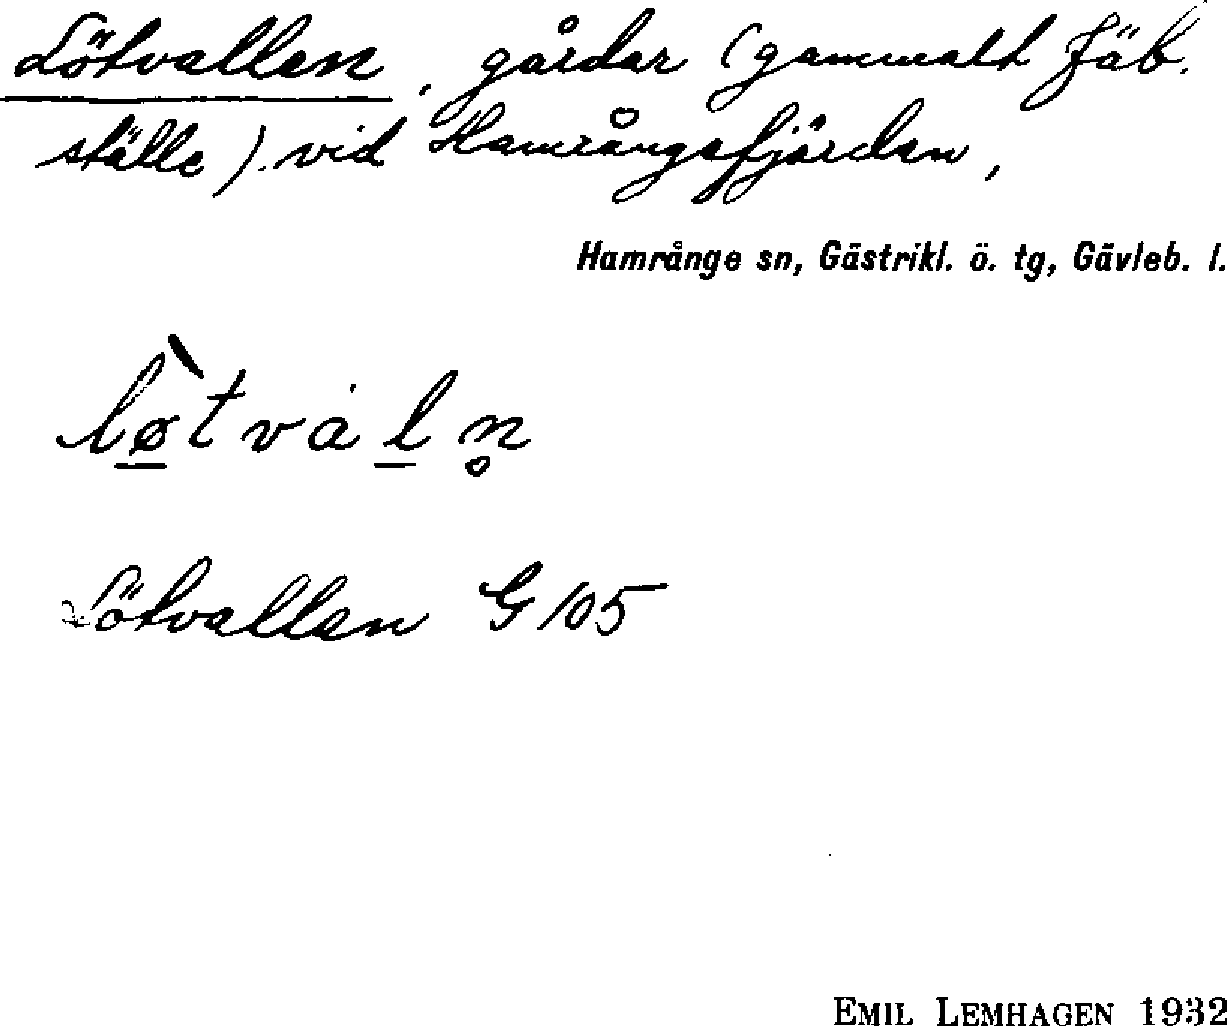 Lötvallen, gårdar (gammalt fäb.
ställe) vid Hamrångefjärden,
Hamrånge sn, Gästrikl. ö. tg, Gävleb. l.
lø̱̀tvàḻn̥
Lötvallen G 105
EMIL LEMHAGEN 1932